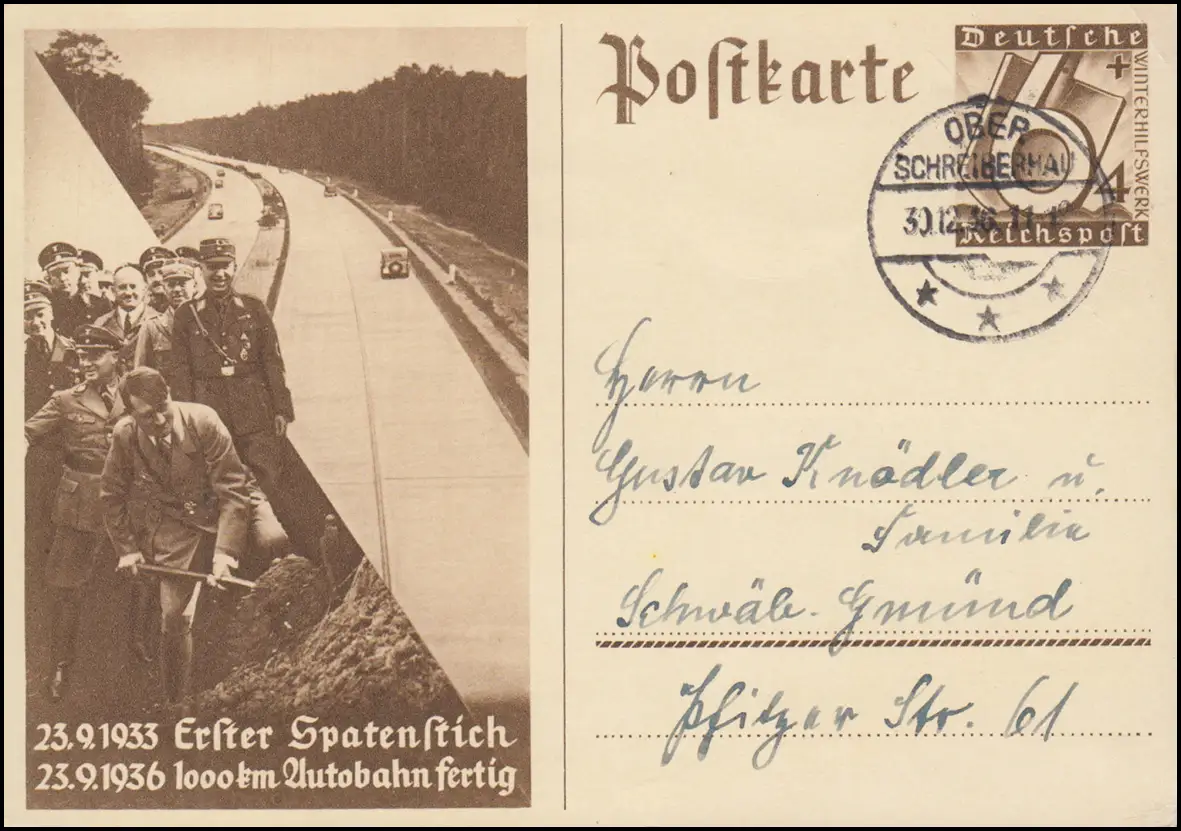 23.9.1933 Erſter Spatenſtich
23.9.1936 1000km Autobahn fertig
Poſtkarte
Deutſche
WINTERHILFSWERK
6+4
Reichspoſt
OBER
SCHREIBERHAU
30.12.36.11-12
Herrn
Gustav Knödler u.
Familie
Schwäb. Gmünd
Pfitzer Str. 61